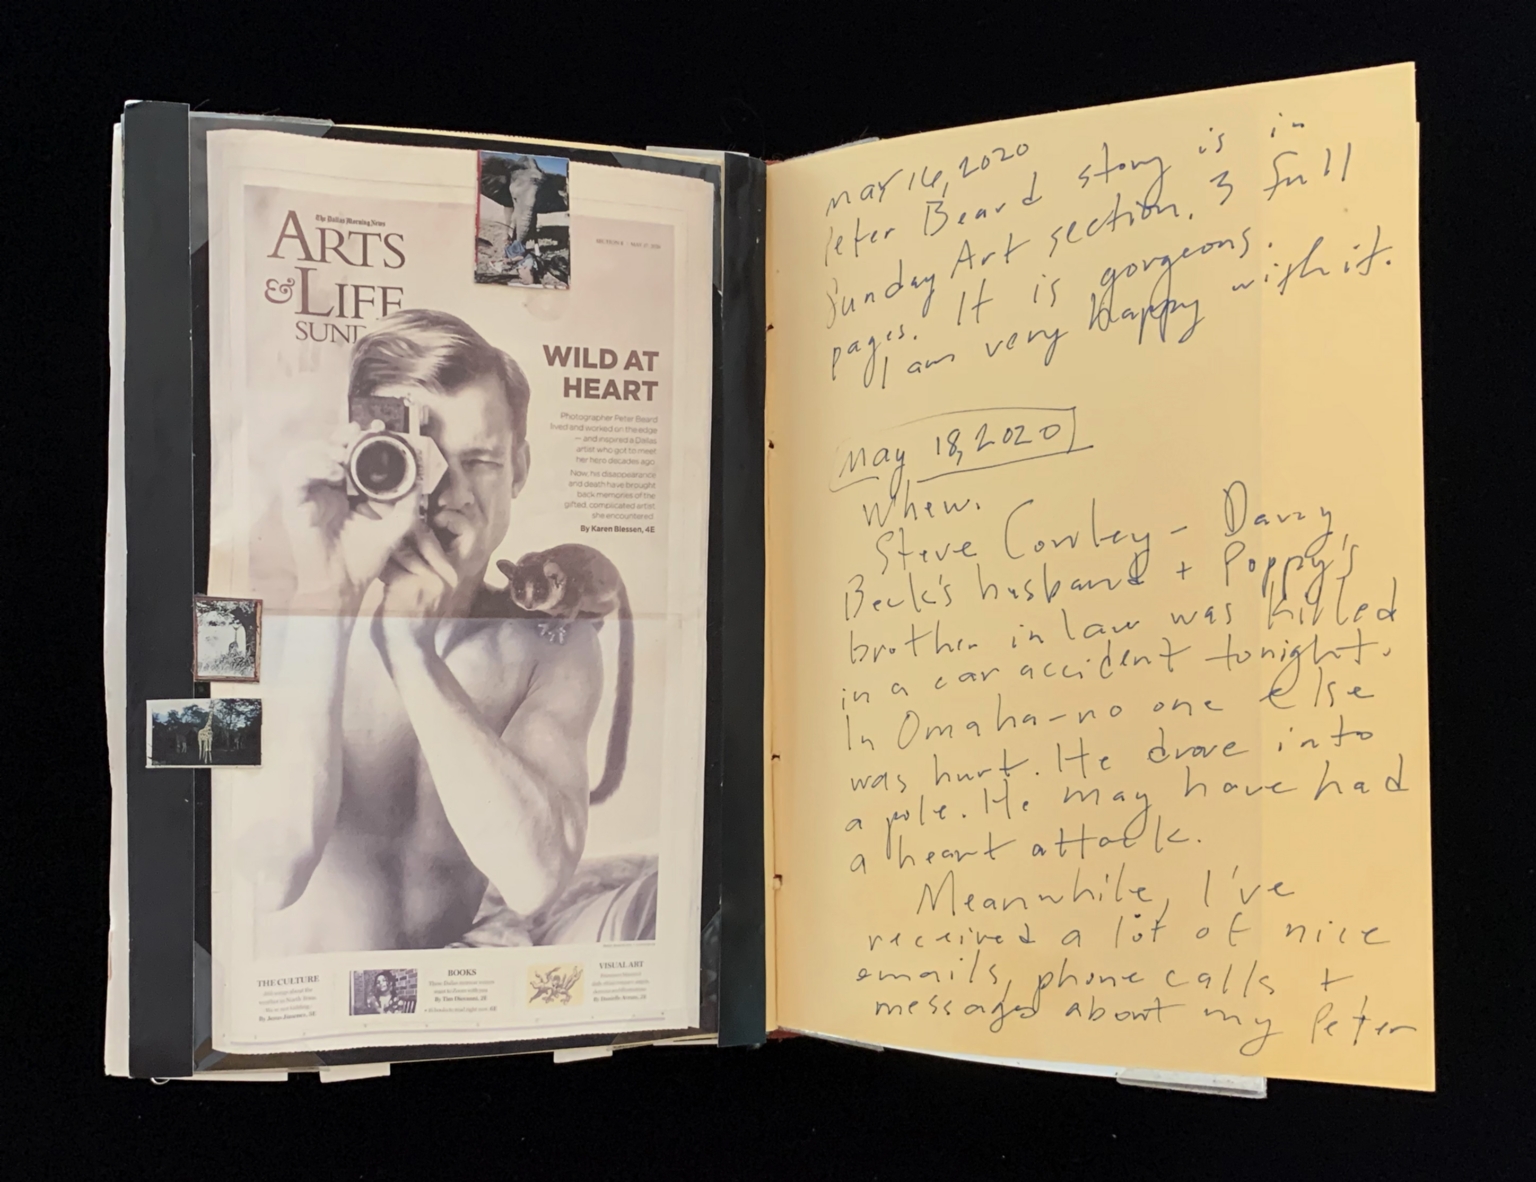 The Dallas Morning News
ARTS
&LIFE
SUND
SECTION E MAY 17, 2020
WILD AT
HEART
Photographer Peter Beard
lived and worked on the edge
— and inspired a Dallas
artist who got to meet
her hero decades ago.
Now, his disappearance
and death have brought
back memories of the
gifted, complicated artist
she encountered.
By Karen Blessen, 4E
THE CULTURE
BOOKS
VISUAL ART
May 16, 2020
Peter Beard story is in
Sunday Art section. 3 full
pages. It is gorgeous.
I am very happy with it.
May 18, 2020
Whew.
Steve Conley - Davy,
Beck's husband + Poppy's
brother in law was killed
in a car accident tonight.
In Omaha - no one else
was hurt. He drove into
a pole. He may have had
a heart attack.
Meanwhile, I've
received a lot of nice
emails, phone calls +
messages about my Peter